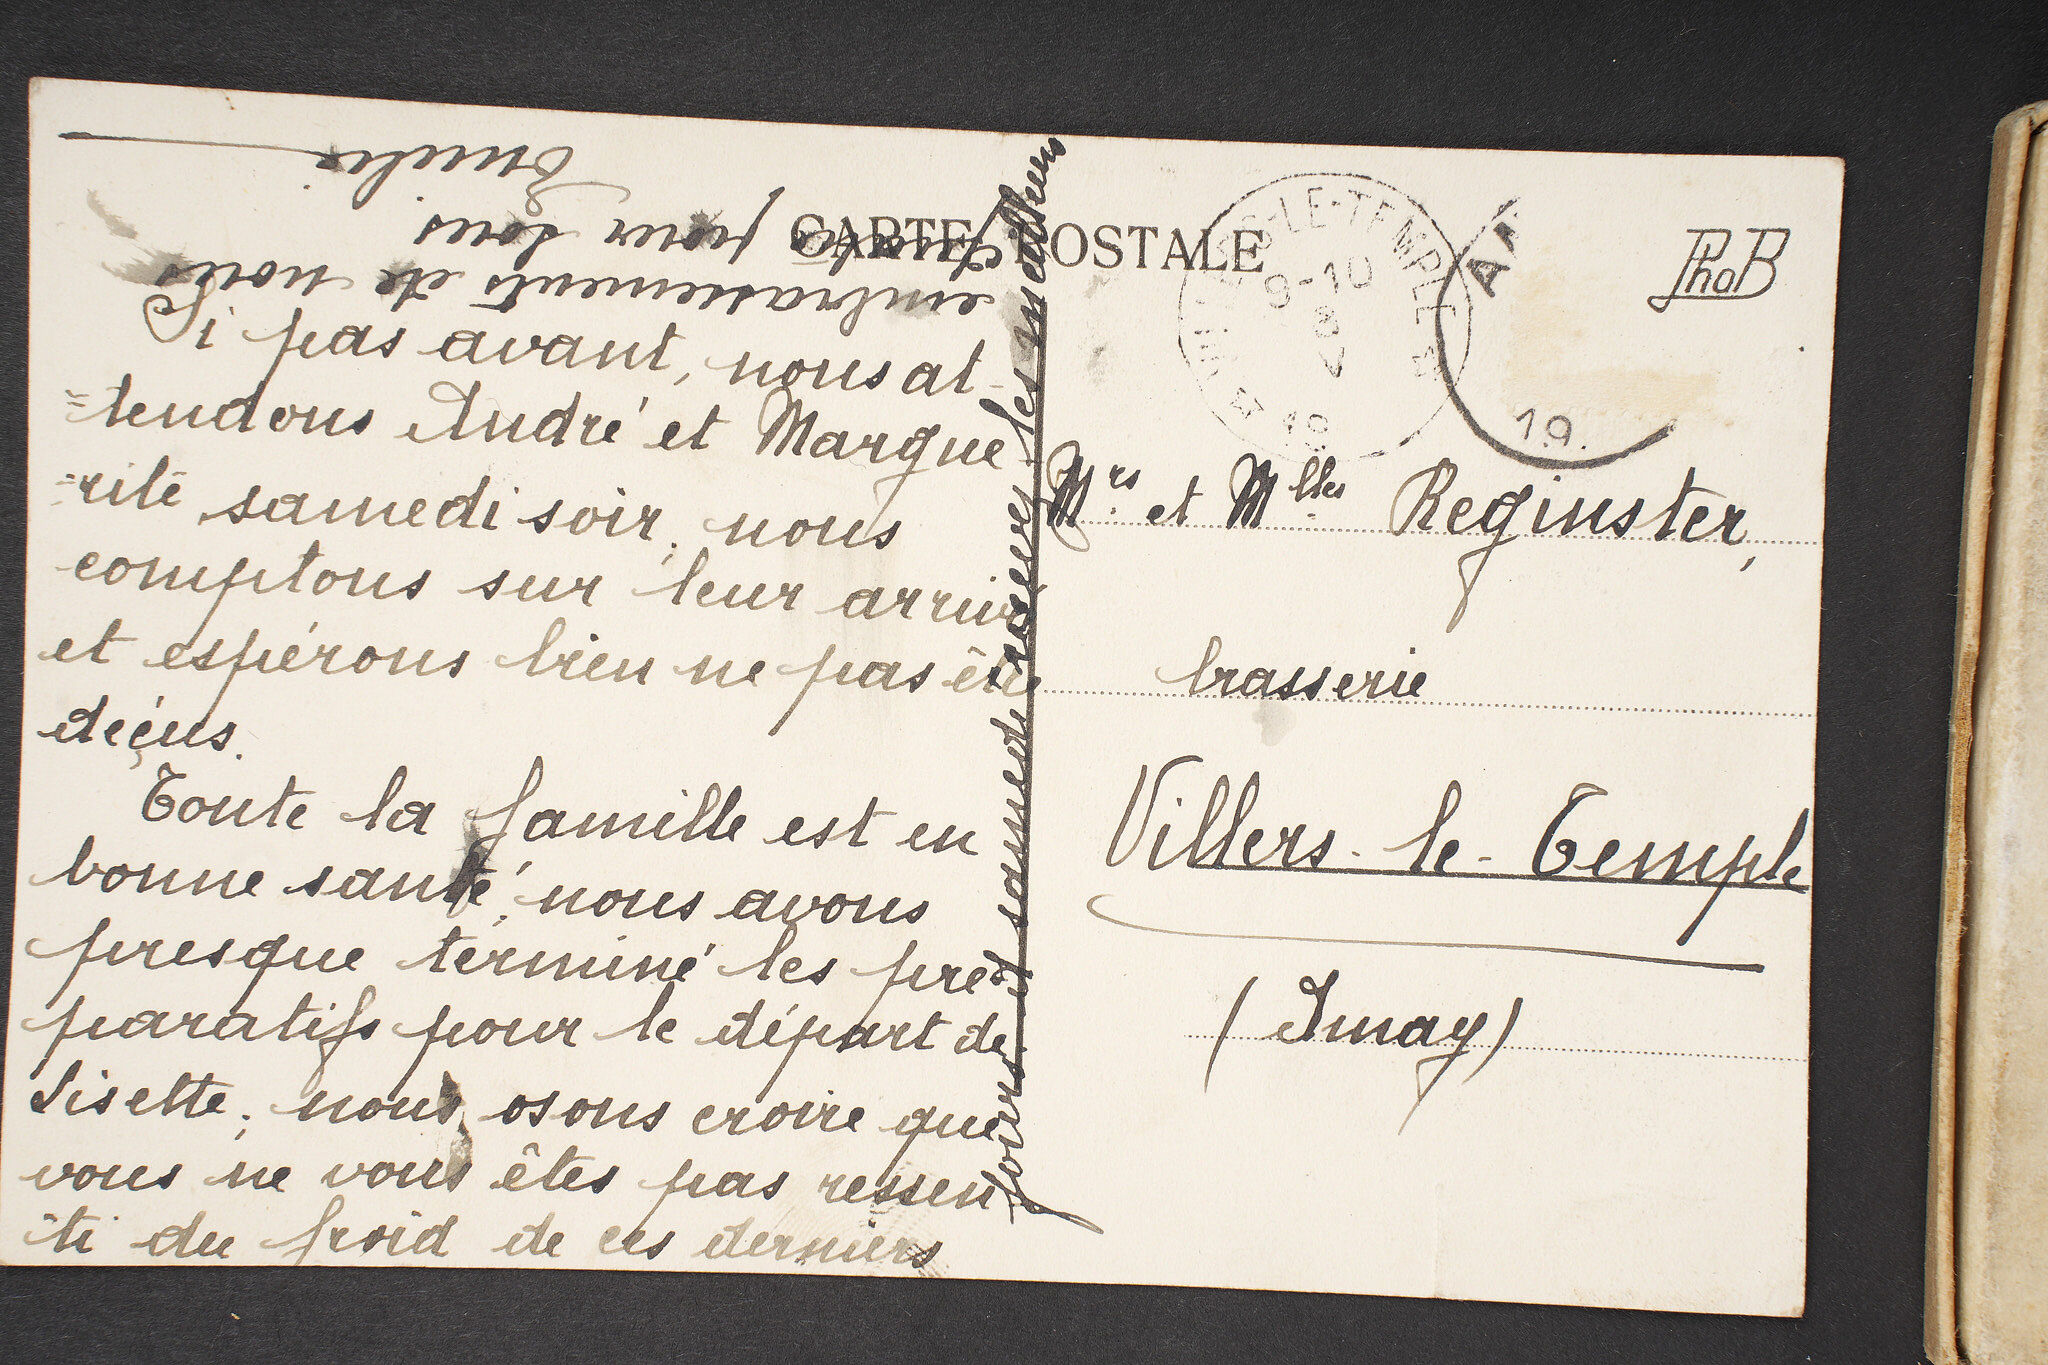 CARTE POSTALE
Si pas avant, nous at-
=tendons André et Margue-
=rite samedi soir, nous
comptons sur leur arrivée
et espérons bien ne pas être
déçus.
Toute la famille est en
bonne santé, nous avons
presque terminé les pré-
paratifs pour le départ de
Lisette; nous osons croire que
vous ne vous êtes pas ressen
=ti du froid de ces derniers
jours et samedi recevez les meilleurs
embrassements de nous
pour tous.
Emilie
VILLERS-LE-TEMPLE
9-10
19
A
19.
PhoB
Mrs. et Mlles. Reginster,
brasserie
Villers-le-Temple
(Amay)